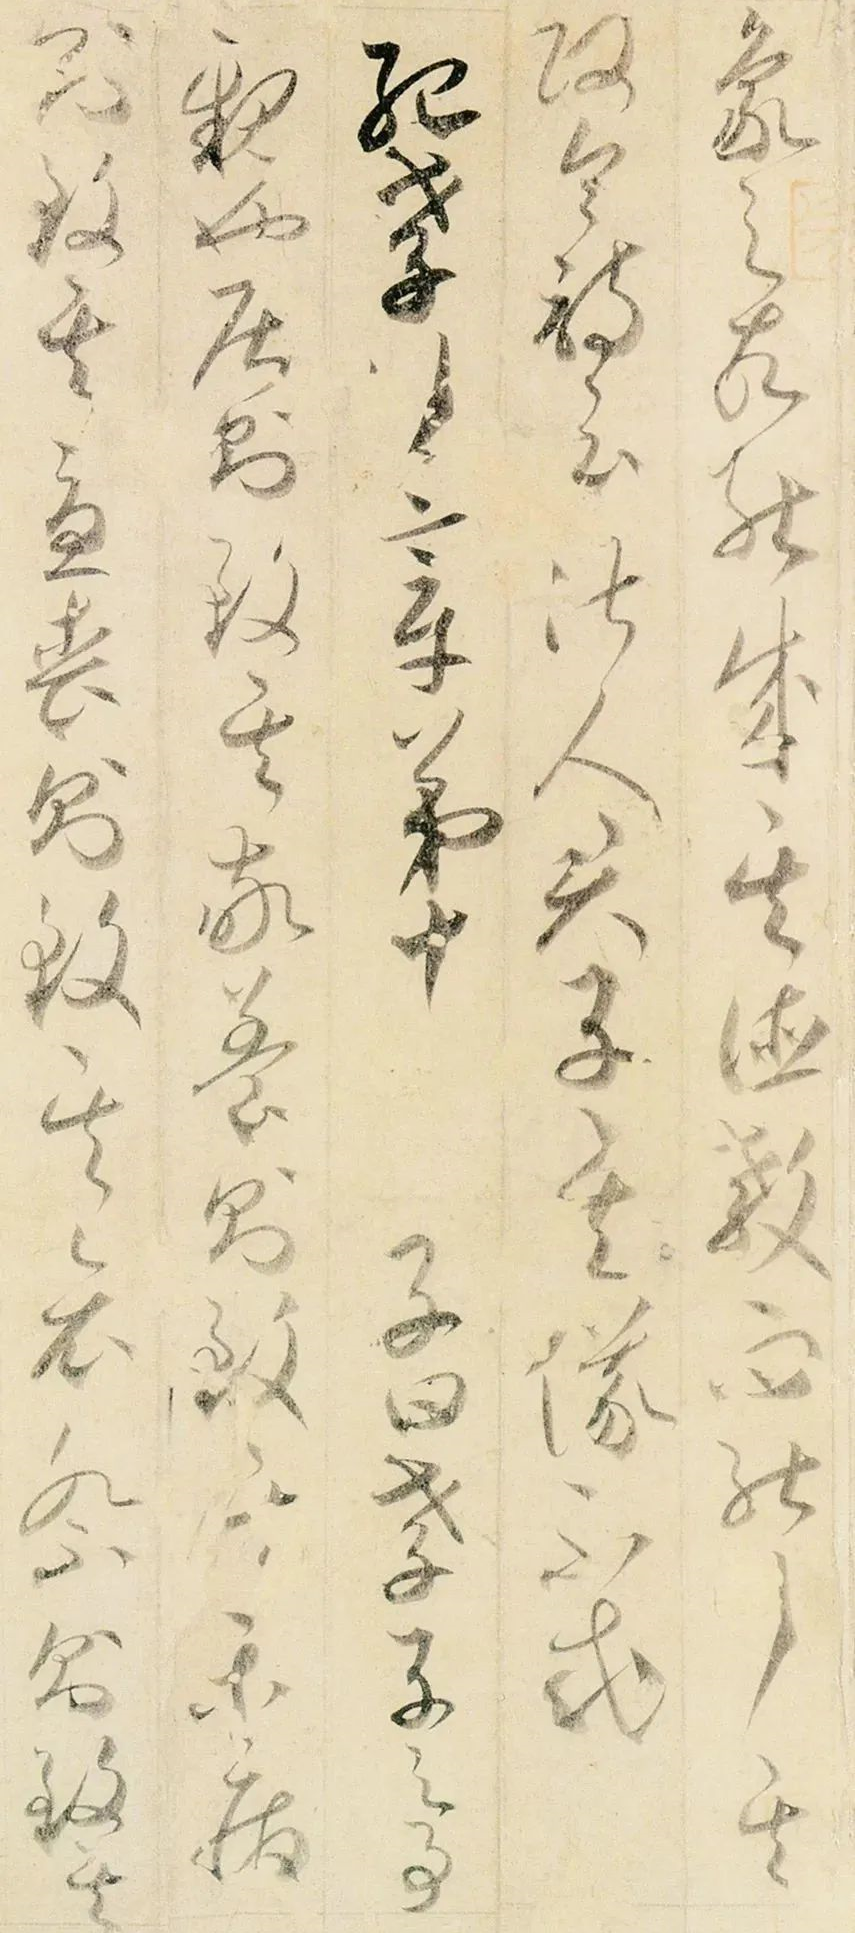 象之故能成其德教而能行其
政令詩云淑人君子其儀不忒
紀孝行章第十 子曰孝子之事
親也居則致其敬養則致其樂病
則致其憂喪則致其哀祭則致其